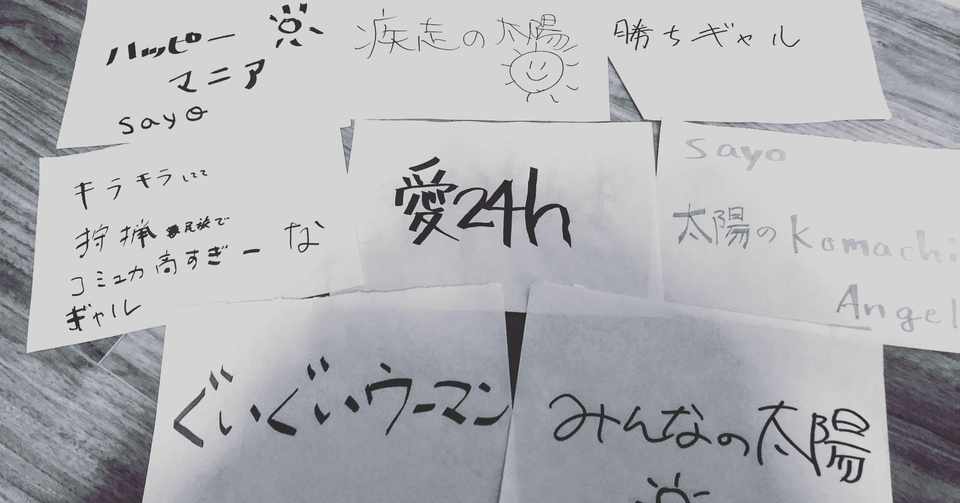 ハッピー
マニア
sayo
疾走の太陽
勝ちギャル
キラキラしてて
狩猟民族で
コミュ力高すぎーな
ギャル
愛24h
sayo
太陽のKomachi
Angel
ぐいぐいウーマン
みんなの太陽